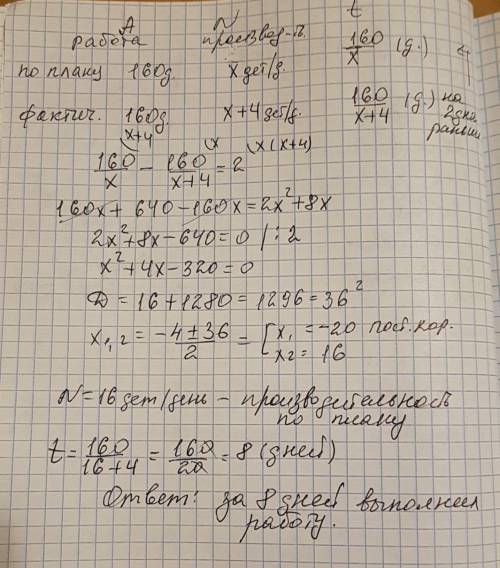 A N t
работа производ-ть 160/x (д.)
по плану 160д. x дет/д.
фактич. 160д. x+4 дет/д. 160/(x+4) (д.) на 2 дня раньше
x+4 x x(x+4)
160/x - 160/(x+4) = 2
160x + 640 - 160x = 2x² + 8x
2x² + 8x - 640 = 0 | : 2
x² + 4x - 320 = 0
D = 16 + 1280 = 1296 = 36²
x₁,₂ = (-4 ± 36)/2 = [ x₁ = -20 пост. кор.
x₂ = 16
N = 16 дет/день - производительность
по плану
t = 160/(16+4) = 160/20 = 8 (дней)
Ответ: за 8 дней выполнил
работу.